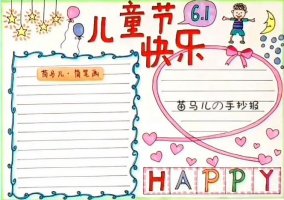 儿童节
快乐
6.1
苗马儿·简笔画
苗马儿の手抄报
HAPPY